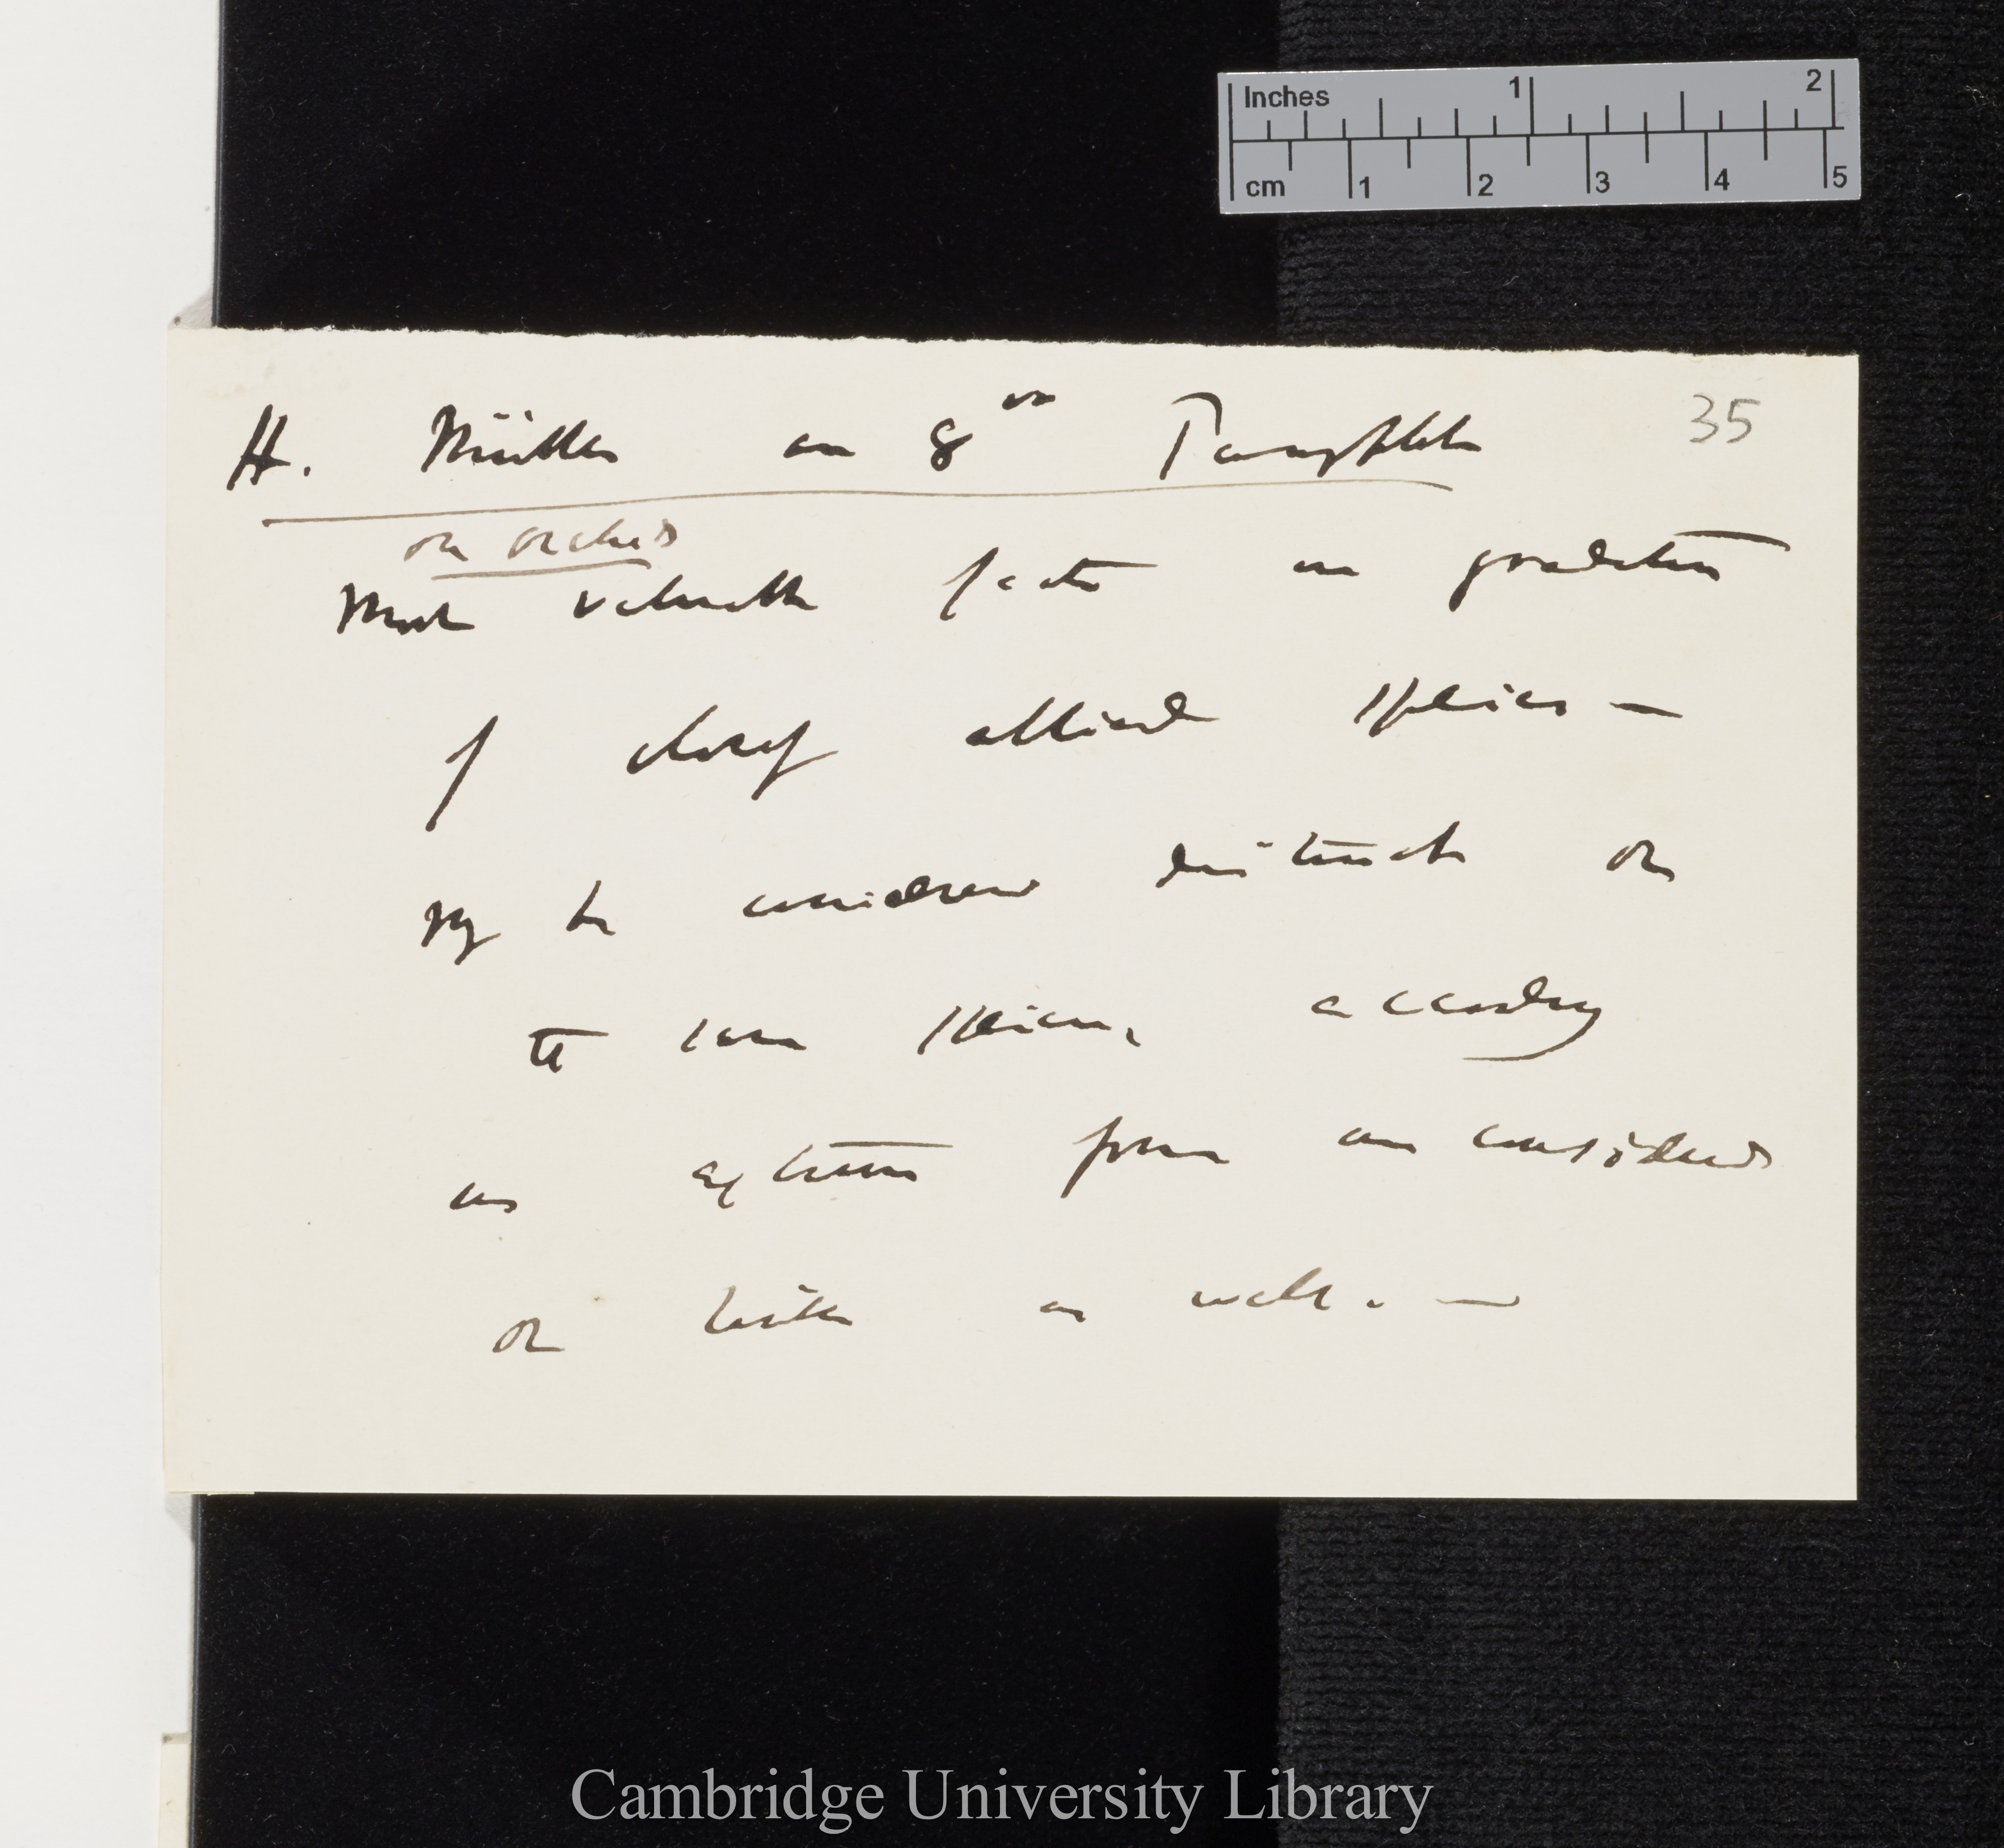 Inches 1 2
cm 1 2 3 4 5
35
H. Müller in 8vo Pamphlets
on orchids
Most valuable facts on gradation
of closely allied species —
may be considered distinct or
the same species, according
as extreme forms are considered
or links as well. —
Cambridge University Library